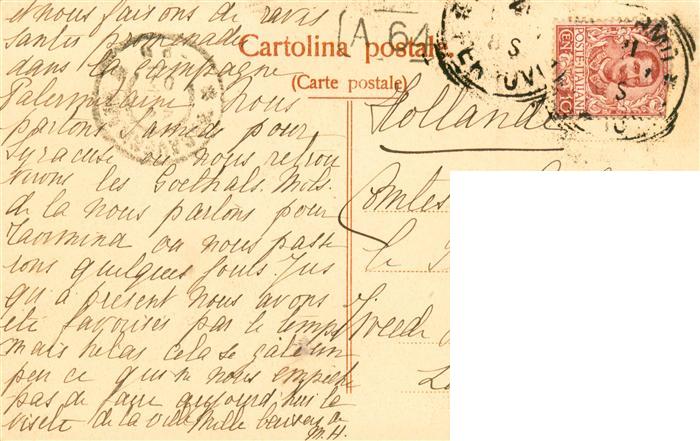 et nous faisons de ravis
santes promenades
dans la campagne
Palermitaine Nous
partons samedi pour
Syracuse ou nous retrou
verons les Goethals. Mols.
de la nous partons pour
Taormina ou nous passe
rons quelques jours. Jus
qu'a present nous avons
été favorisés par le temps
mais helas cela se gâte un
peu ce qui nous empêche
pas de faire aujourd'hui la
visite de la ville Mille baisers
M.H.
A. 64
Cartolina postale.
(Carte postale)
Hollande
Comtesse
POSTE ITALIANE
CENT. 10